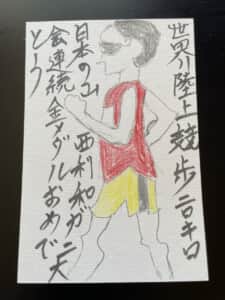 世界陸上競歩二〇キロ
日本の山西利和が二大
会連続金メダルおめで
とう